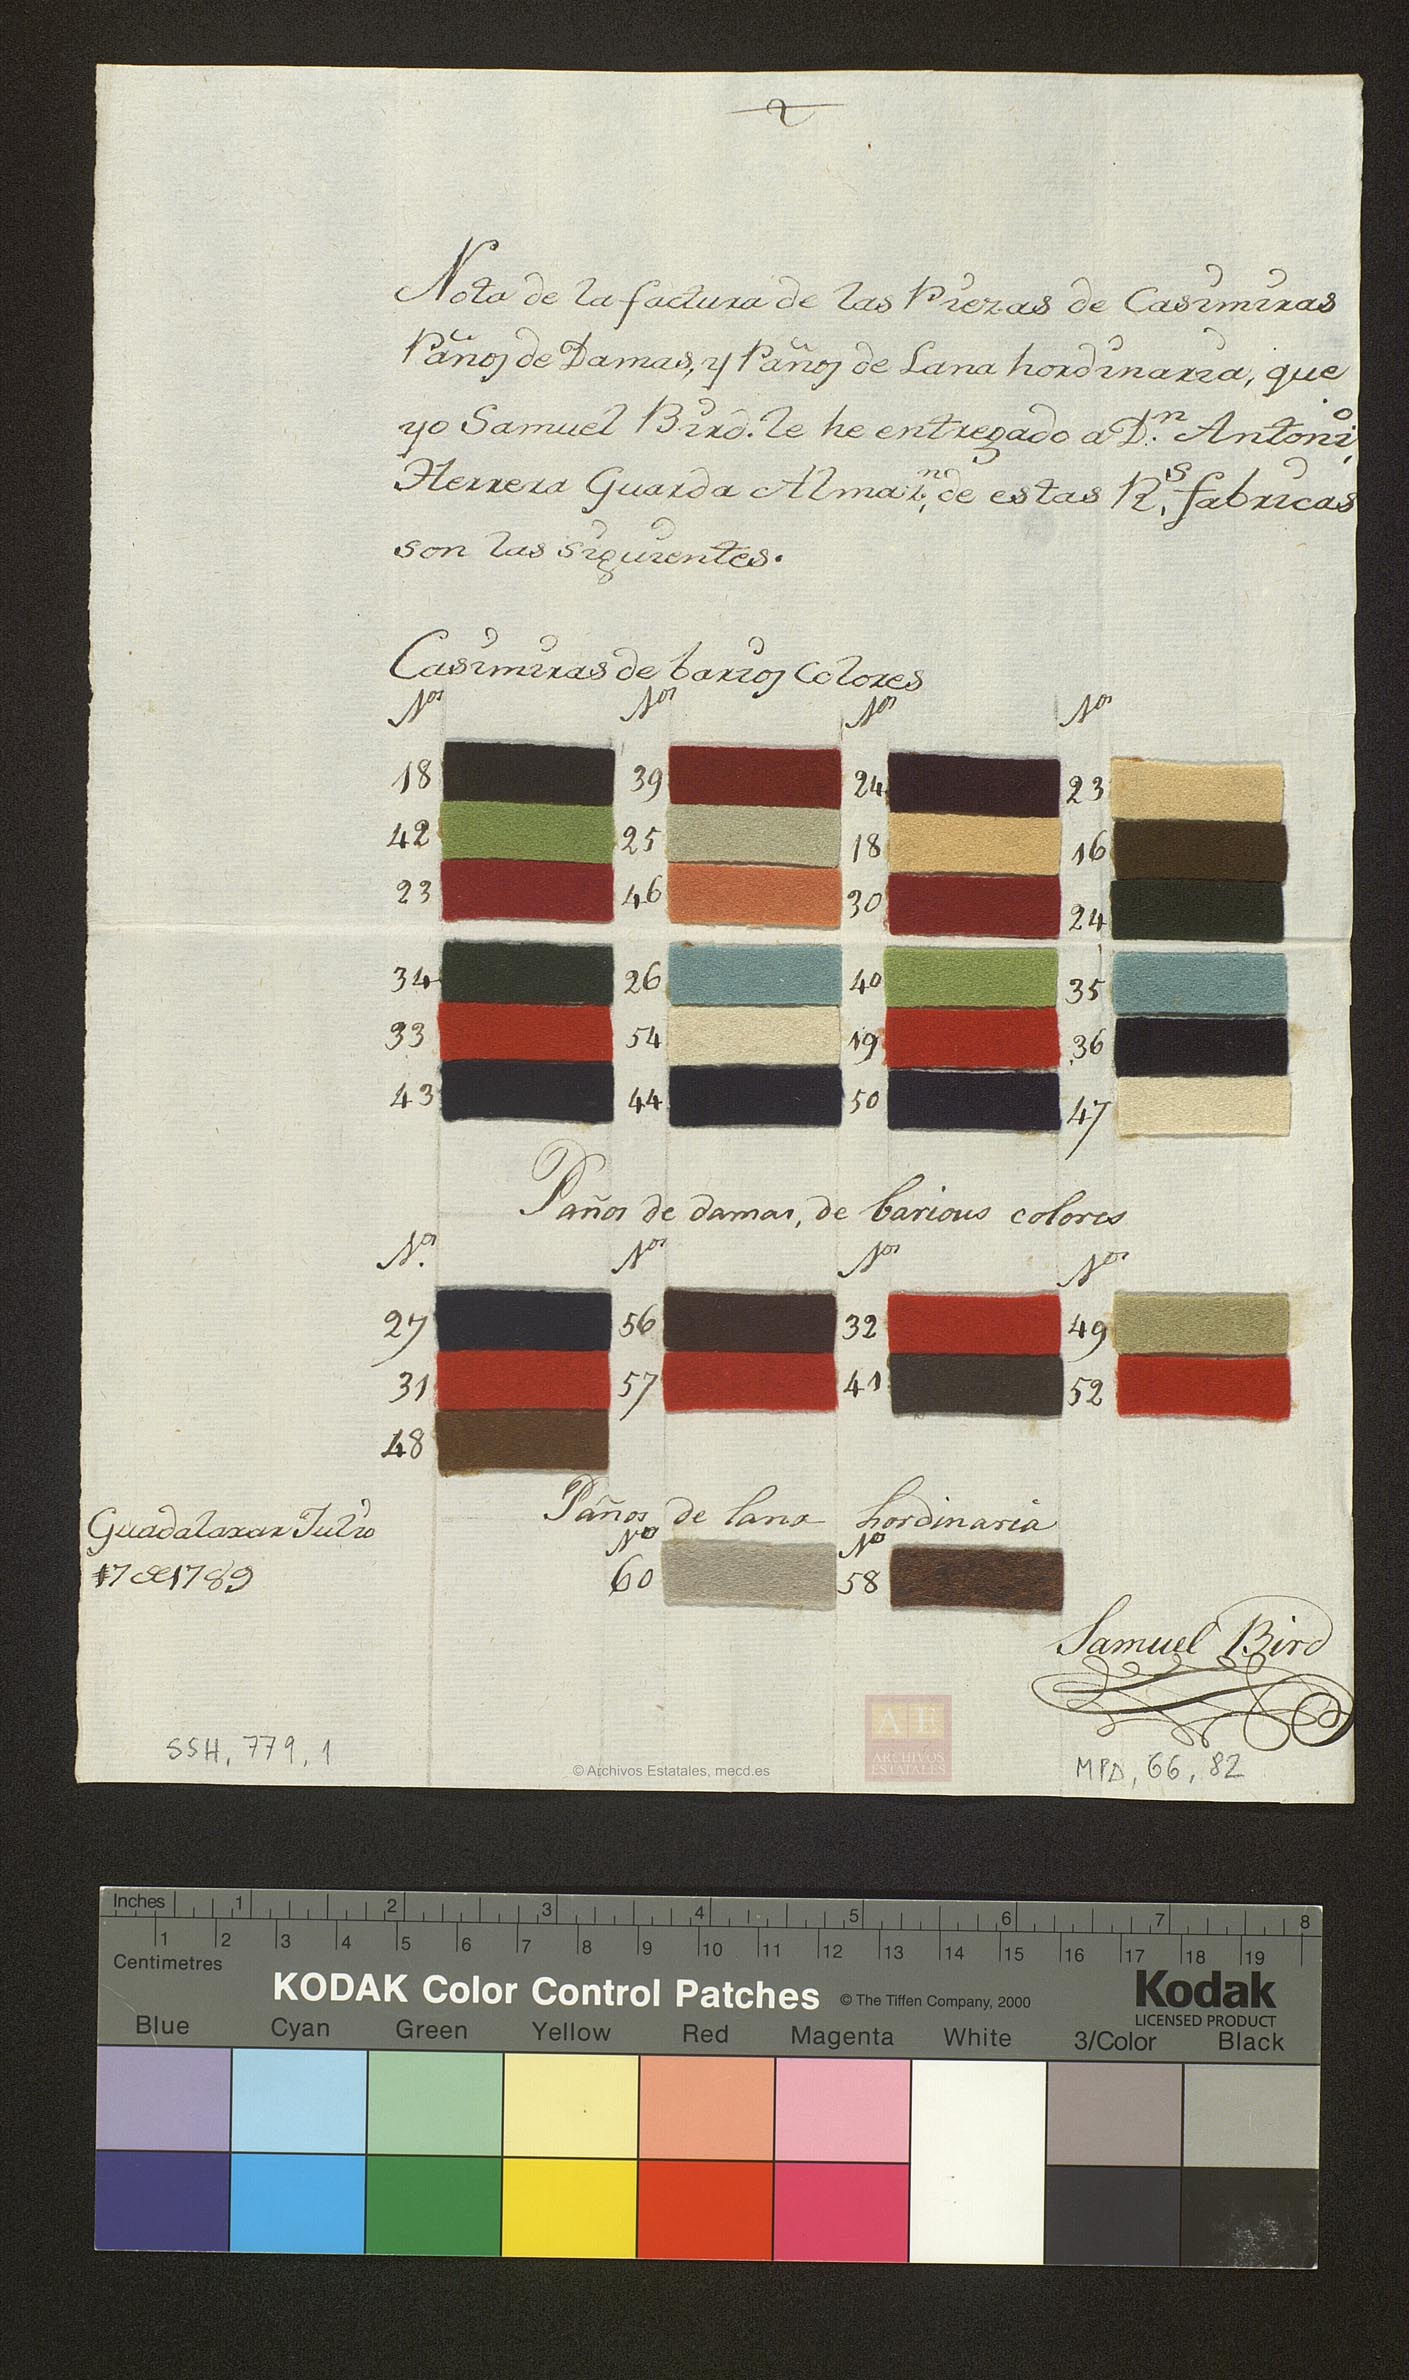 2
Nota de la factura de las Piezas de Casimiras
Paños de Damas, y Paños de Lana hordinaria, que
yo Samuel Bird. le he entregado a D.n Antonio
Herrera Guarda Almaz.n de estas R.s fabricas
son las siguientes.
Casimiras de barios Colores
Nos Nos Nos Nos
18 39 24 23
42 25 18 16
23 46 30 24
34 26 40 35
33 54 19 36
43 44 50 47
Paños de damas, de barious colores
Nos Nos Nos Nos
27 56 32 49
31 57 41 52
48
Paños de lana hordinaria
No No
60 58
Guadalaxar Julio
17 de 1789
Samuel Bird
SSH, 779, 1
© Archivos Estatales, mecd.es
AE
ARCHIVOS
ESTATALES
MPD, 66, 82
Inches 1 2 3 4 5 6 7 8
1 2 3 4 5 6 7 8 9 10 11 12 13 14 15 16 17 18 19
Centimetres
KODAK Color Control Patches © The Tiffen Company, 2000 Kodak
LICENSED PRODUCT
Blue Cyan Green Yellow Red Magenta White 3/Color Black